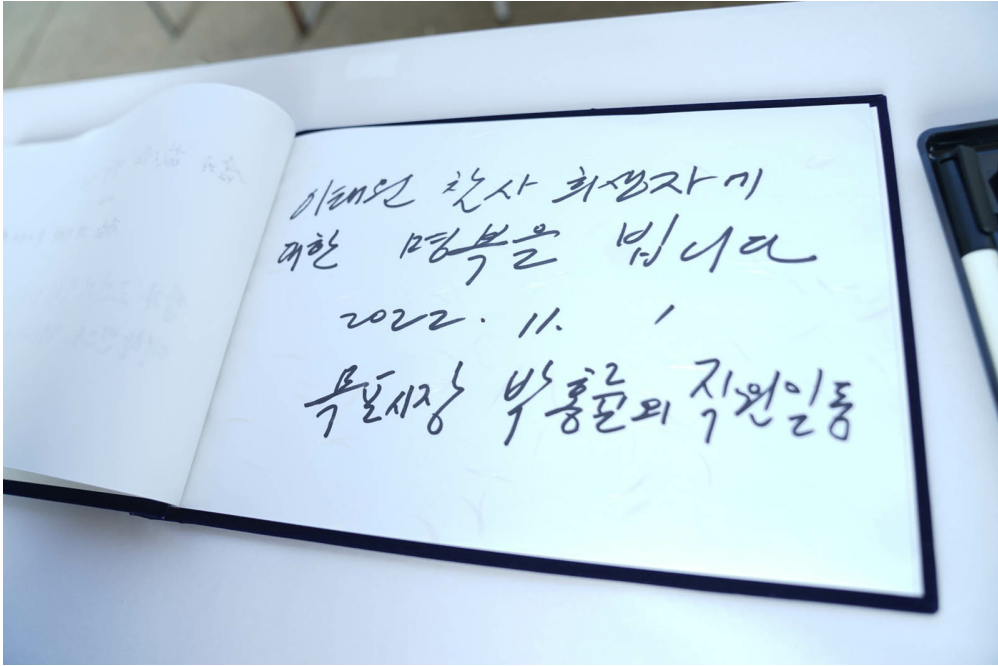 이태원 참사 희생자에
대한 명복을 빕니다
2022. 11. 1
목포시장 박홍률외 직원일동